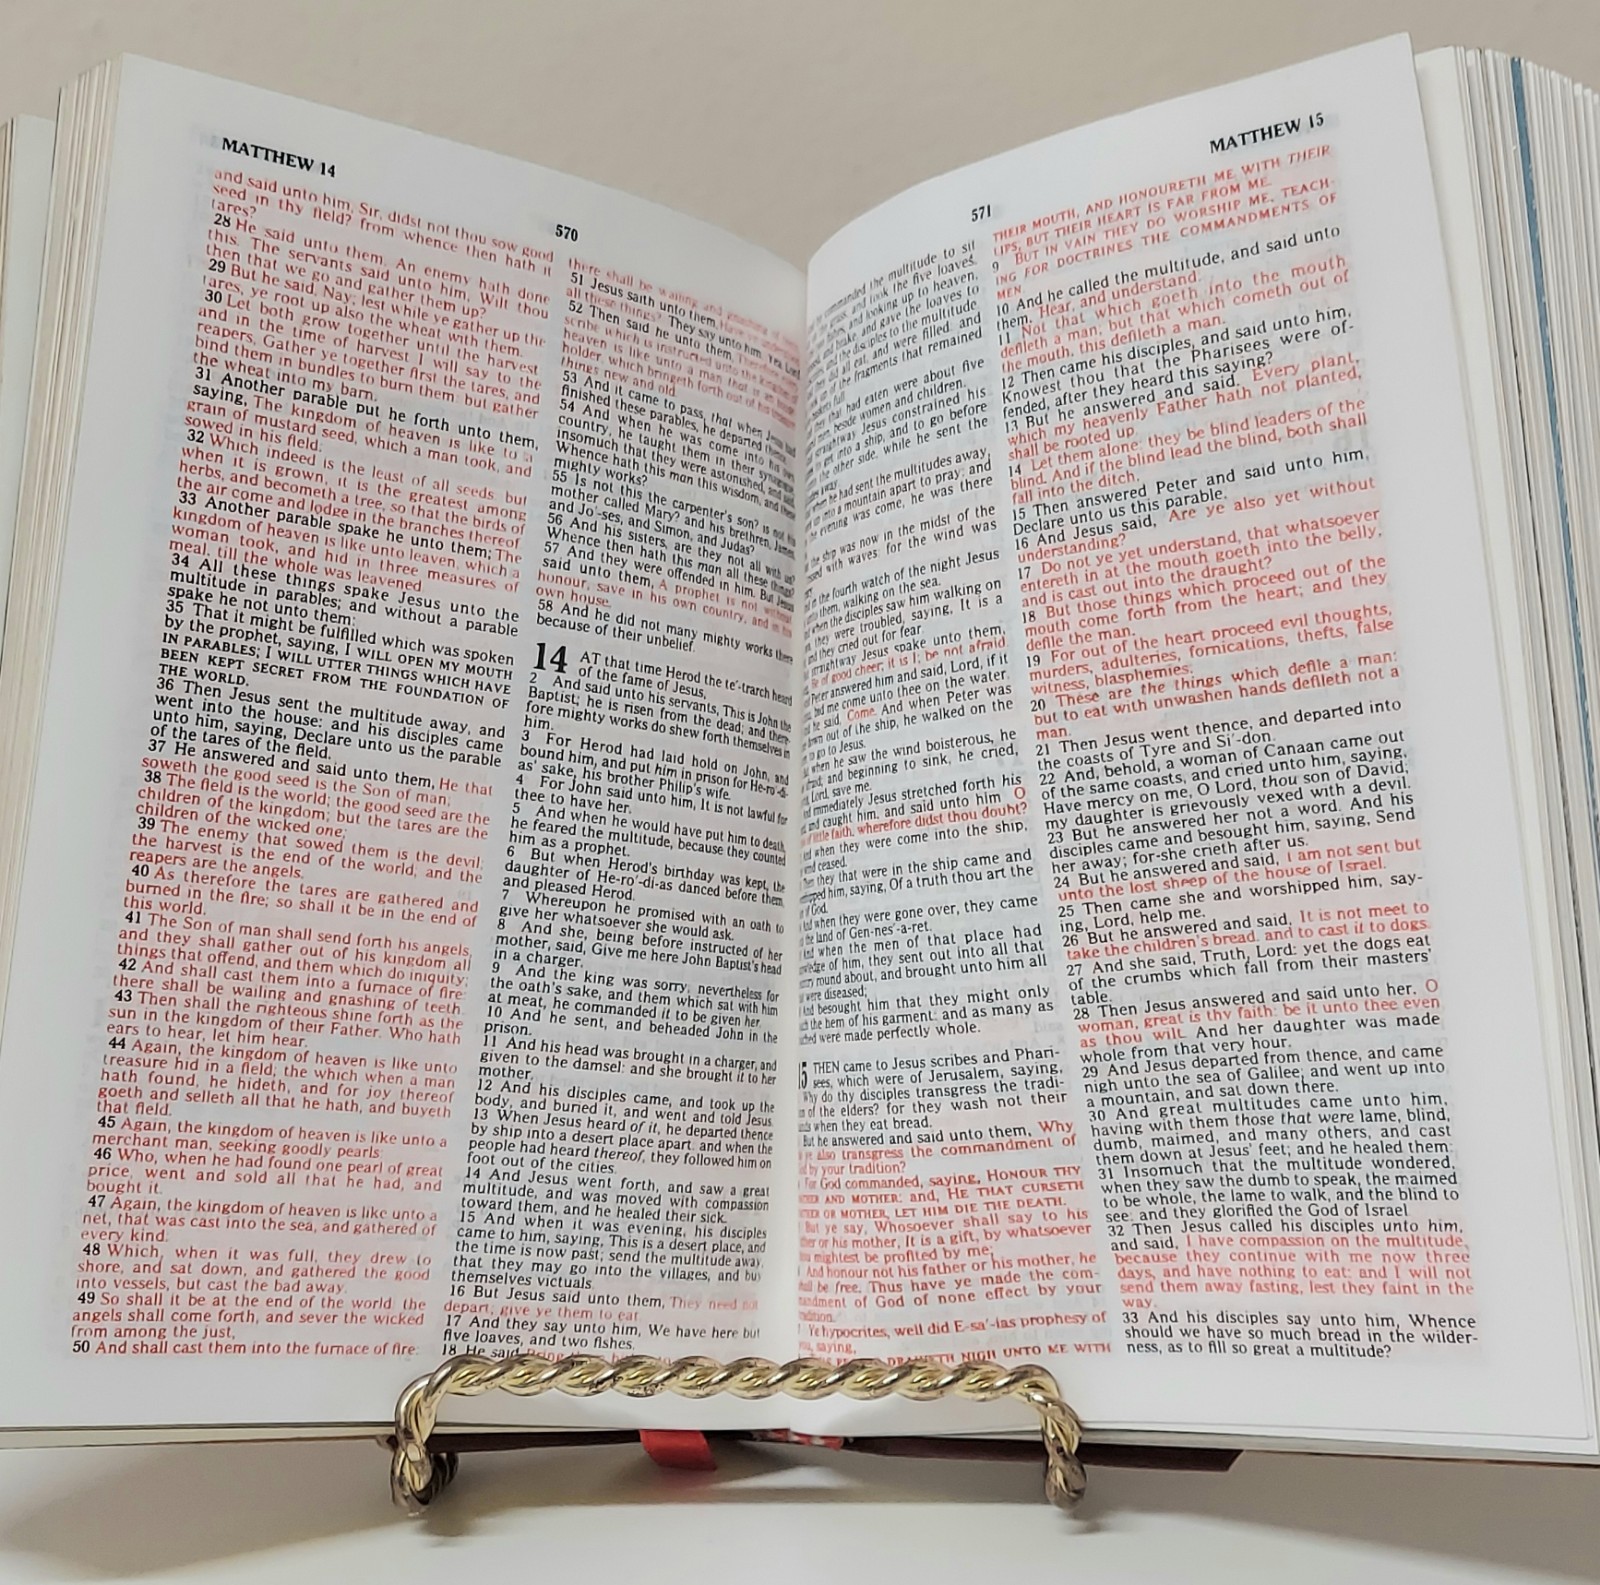 MATTHEW 14
570
and said unto him, Sir, didst not thou sow good
seed in thy field? from whence then hath it
tares?
28 He said unto them, An enemy hath done
this. The servants said unto him, Wilt thou
then that we go and gather them up?
29 But he said, Nay; lest while ye gather up the
tares, ye root up also the wheat with them.
30 Let both grow together until the harvest
and in the time of harvest I will say to the
reapers, Gather ye together first the tares, and
bind them in bundles to burn them: but gather
the wheat into my barn.
31 Another parable put he forth unto them,
saying, The kingdom of heaven is like to a
grain of mustard seed, which a man took, and
sowed in his field:
32 Which indeed is the least of all seeds: but
when it is grown, it is the greatest among
herbs, and becometh a tree, so that the birds of
the air come and lodge in the branches thereof
33 Another parable spake he unto them; The
kingdom of heaven is like unto leaven, which a
woman took, and hid in three measures of
meal, till the whole was leavened.
34 All these things spake Jesus unto the
multitude in parables; and without a parable
spake he not unto them:
35 That it might be fulfilled which was spoken
by the prophet, saying, I WILL OPEN MY MOUTH
IN PARABLES; I WILL UTTER THINGS WHICH HAVE
BEEN KEPT SECRET FROM THE FOUNDATION OF
THE WORLD.
36 Then Jesus sent the multitude away, and
went into the house: and his disciples came
unto him, saying, Declare unto us the parable
of the tares of the field.
37 He answered and said unto them, He that
soweth the good seed is the Son of man;
38 The field is the world; the good seed are the
children of the kingdom; but the tares are the
children of the wicked one;
39 The enemy that sowed them is the devil;
the harvest is the end of the world; and the
reapers are the angels.
40 As therefore the tares are gathered and
burned in the fire; so shall it be in the end of
this world.
41 The Son of man shall send forth his angels,
and they shall gather out of his kingdom all
things that offend, and them which do iniquity;
42 And shall cast them into a furnace of fire:
there shall be wailing and gnashing of teeth.
43 Then shall the righteous shine forth as the
sun in the kingdom of their Father. Who hath
ears to hear, let him hear.
44 Again, the kingdom of heaven is like unto
treasure hid in a field; the which when a man
hath found, he hideth, and for joy thereof
goeth and selleth all that he hath, and buyeth
that field.
45 Again, the kingdom of heaven is like unto a
merchant man, seeking goodly pearls:
46 Who, when he had found one pearl of great
price, went and sold all that he had, and
bought it.
47 Again, the kingdom of heaven is like unto a
net, that was cast into the sea, and gathered of
every kind:
48 Which, when it was full, they drew to
shore, and sat down, and gathered the good
into vessels, but cast the bad away.
49 So shall it be at the end of the world: the
angels shall come forth, and sever the wicked
from among the just,
50 And shall cast them into the furnace of fire:
there shall be wailing and gnashing of
51 Jesus saith unto them, Have
all these things? They say unto him, Yea, Lord
52 Then said he unto them, Therefore
scribe which is instructed unto the kingdom
heaven is like unto a man that is an
holder, which bringeth forth out of his
things new and old.
53 And it came to pass, that when Jesus had
finished these parables, he departed thence.
54 And when he was come into his own
country, he taught them in their synagogue
insomuch that they were astonished, and said
Whence hath this man this wisdom, and these
mighty works?
55 Is not this the carpenter's son? is not his
mother called Mary? and his brethren, James,
and Jo'-ses, and Simon, and Judas?
56 And his sisters, are they not all with us?
Whence then hath this man all these things?
57 And they were offended in him. But Jesus
said unto them, A prophet is not without
honour, save in his own country, and in his
own house.
58 And he did not many mighty works there
because of their unbelief.
14 AT that time Herod the te'-trarch heard
of the fame of Jesus,
2 And said unto his servants, This is John the
Baptist; he is risen from the dead; and there-
fore mighty works do shew forth themselves in
him.
3 For Herod had laid hold on John, and
bound him, and put him in prison for He-ro'-di-
as' sake, his brother Philip's wife.
4 For John said unto him, It is not lawful for
thee to have her.
5 And when he would have put him to death,
he feared the multitude, because they counted
him as a prophet.
6 But when Herod's birthday was kept, the
daughter of He-ro'-di-as danced before them,
and pleased Herod.
7 Whereupon he promised with an oath to
give her whatsoever she would ask.
8 And she, being before instructed of her
mother, said, Give me here John Baptist's head
in a charger.
9 And the king was sorry: nevertheless for
the oath's sake, and them which sat with him
at meat, he commanded it to be given her.
10 And he sent, and beheaded John in the
prison.
11 And his head was brought in a charger, and
given to the damsel: and she brought it to her
mother.
12 And his disciples came, and took up the
body, and buried it, and went and told Jesus.
13 When Jesus heard of it, he departed thence
by ship into a desert place apart: and when the
people had heard thereof, they followed him on
foot out of the cities.
14 And Jesus went forth, and saw a great
multitude, and was moved with compassion
toward them, and he healed their sick.
15 And when it was evening, his disciples
came to him, saying, This is a desert place, and
the time is now past; send the multitude away,
that they may go into the villages, and buy
themselves victuals.
16 But Jesus said unto them, They need not
depart; give ye them to eat.
17 And they say unto him, We have here but
five loaves, and two fishes.
18 He said,
MATTHEW 15
571
commanded the multitude to sit
and took the five loaves,
and looking up to heaven,
and brake, and gave the loaves to
and the disciples to the multitude.
did all eat, and were filled: and
of the fragments that remained
full.
that had eaten were about five
men, beside women and children.
straightway Jesus constrained his
to get into a ship, and to go before
the other side, while he sent the
away.
when he had sent the multitudes away,
up into a mountain apart to pray: and
evening was come, he was there
the ship was now in the midst of the
with waves: for the wind was
in the fourth watch of the night Jesus
unto them, walking on the sea.
when the disciples saw him walking on
they were troubled, saying, It is a
and they cried out for fear.
straightway Jesus spake unto them,
Be of good cheer; it is I; be not afraid
Peter answered him and said, Lord, if it
bid me come unto thee on the water.
he said, Come. And when Peter was
down out of the ship, he walked on the
to go to Jesus.
when he saw the wind boisterous, he
and beginning to sink, he cried,
Lord, save me.
immediately Jesus stretched forth his
and caught him, and said unto him, O
of little faith, wherefore didst thou doubt?
when they were come into the ship,
wind ceased.
Then they that were in the ship came and
him, saying, Of a truth thou art the
of God.
when they were gone over, they came
the land of Gen-nes'-a-ret.
And when the men of that place had
of him, they sent out into all that
round about, and brought unto him all
were diseased;
And besought him that they might only
the hem of his garment: and as many as
were made perfectly whole.
15 THEN came to Jesus scribes and Phari-
sees, which were of Jerusalem, saying,
Why do thy disciples transgress the tradi-
of the elders? for they wash not their
when they eat bread.
But he answered and said unto them, Why
ye also transgress the commandment of
by your tradition?
For God commanded, saying, HONOUR THY
AND MOTHER: and, HE THAT CURSETH
OR MOTHER, LET HIM DIE THE DEATH.
But ye say, Whosoever shall say to his
or his mother, It is a gift, by whatsoever
mightest be profited by me;
And honour not his father or his mother, he
shall be free. Thus have ye made the com-
mandment of God of none effect by your
tradition.
Ye hypocrites, well did E-sa'-ias prophesy of
you, saying,
DRAWETH NIGH UNTO ME WITH
THEIR MOUTH, AND HONOURETH ME WITH THEIR
LIPS; BUT THEIR HEART IS FAR FROM ME.
9 BUT IN VAIN THEY DO WORSHIP ME, TEACH-
ING FOR DOCTRINES THE COMMANDMENTS OF
MEN.
10 And he called the multitude, and said unto
them, Hear, and understand:
11 Not that which goeth into the mouth
defileth a man; but that which cometh out of
the mouth, this defileth a man.
12 Then came his disciples, and said unto him,
Knowest thou that the Pharisees were of-
fended, after they heard this saying?
13 But he answered and said, Every plant,
which my heavenly Father hath not planted,
shall be rooted up.
14 Let them alone: they be blind leaders of the
blind. And if the blind lead the blind, both shall
fall into the ditch.
15 Then answered Peter and said unto him,
Declare unto us this parable.
16 And Jesus said, Are ye also yet without
understanding?
17 Do not ye yet understand, that whatsoever
entereth in at the mouth goeth into the belly,
and is cast out into the draught?
18 But those things which proceed out of the
mouth come forth from the heart; and they
defile the man.
19 For out of the heart proceed evil thoughts,
murders, adulteries, fornications, thefts, false
witness, blasphemies:
20 These are the things which defile a man:
but to eat with unwashen hands defileth not a
man.
21 Then Jesus went thence, and departed into
the coasts of Tyre and Si'-don.
22 And, behold, a woman of Canaan came out
of the same coasts, and cried unto him, saying,
Have mercy on me, O Lord, thou son of David;
my daughter is grievously vexed with a devil.
23 But he answered her not a word. And his
disciples came and besought him, saying, Send
her away; for she crieth after us.
24 But he answered and said, I am not sent but
unto the lost sheep of the house of Israel.
25 Then came she and worshipped him, say-
ing, Lord, help me.
26 But he answered and said, It is not meet to
take the children's bread, and to cast it to dogs.
27 And she said, Truth, Lord: yet the dogs eat
of the crumbs which fall from their masters'
table.
28 Then Jesus answered and said unto her, O
woman, great is thy faith: be it unto thee even
as thou wilt. And her daughter was made
whole from that very hour.
29 And Jesus departed from thence, and came
nigh unto the sea of Galilee; and went up into
a mountain, and sat down there.
30 And great multitudes came unto him,
having with them those that were lame, blind,
dumb, maimed, and many others, and cast
them down at Jesus' feet; and he healed them:
31 Insomuch that the multitude wondered,
when they saw the dumb to speak, the maimed
to be whole, the lame to walk, and the blind to
see: and they glorified the God of Israel
32 Then Jesus called his disciples unto him,
and said, I have compassion on the multitude,
because they continue with me now three
days, and have nothing to eat: and I will not
send them away fasting, lest they faint in the
way.
33 And his disciples say unto him, Whence
should we have so much bread in the wilder-
ness, as to fill so great a multitude?